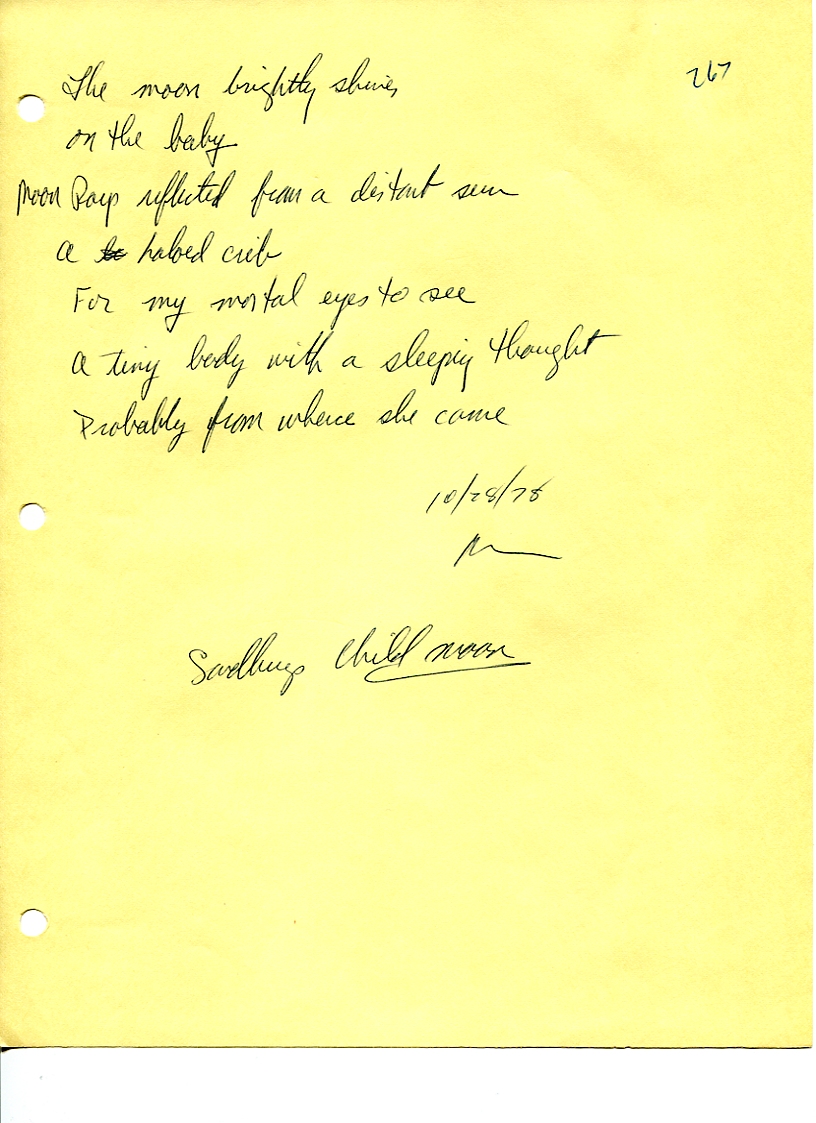 267
The moon brightly shines
on the baby
Moon Rays reflected from a distant sun
a haloed crib
For my mortal eyes to see
a tiny body with a sleeping thought
Probably from whence she came
10/28/78
Child moon